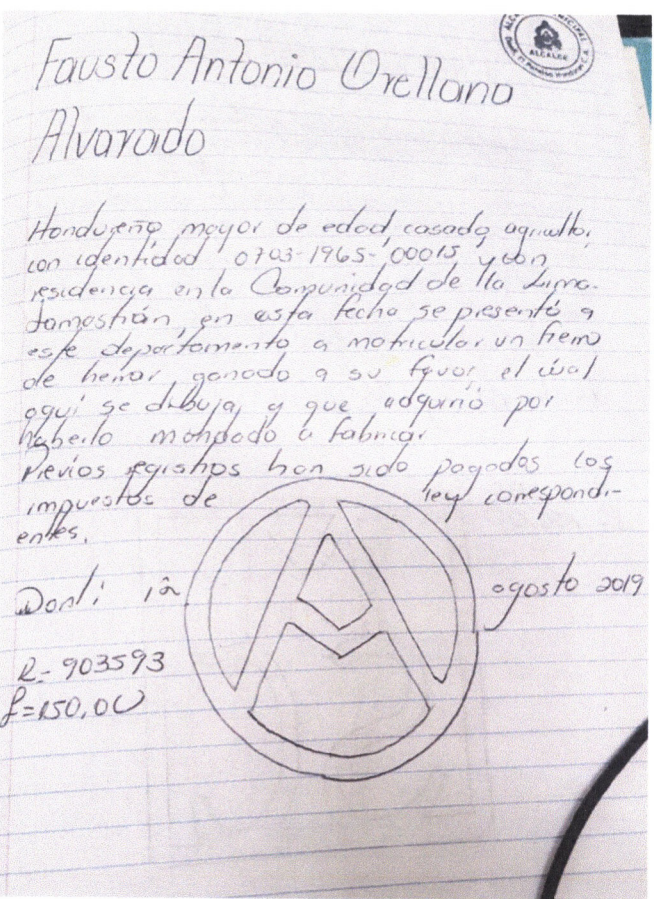 Fausto Antonio Orellana
Alvarado
ALCALDE
Hondureño mayor de edad, casado, agricultor,
con identidad 0703-1965-00015 y con
residencia en la Comunidad de lla Lima.
Jamastrán, en esta fecha se presentó a
este departamento a matricular un fierro
de herrar ganado a su favor, el cual
aquí se dibuja, y que adquirió por
haberlo mandado a fabricar.
Previos registros han sido pagados los
impuestos de ley correspondi-
entes.
Danlí agosto 2019
R- 903593
L=150.00